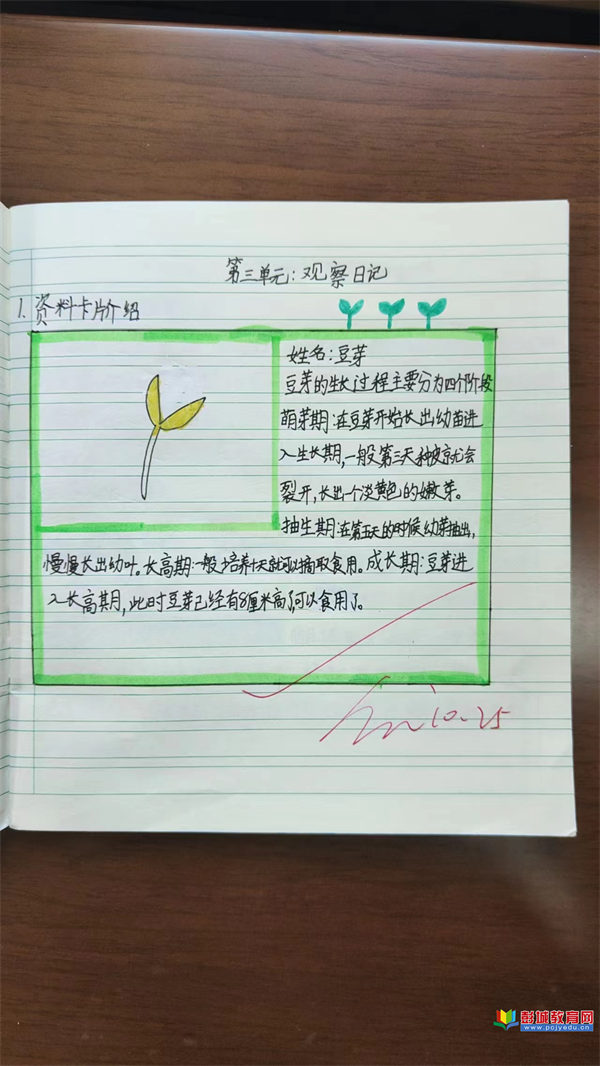 第三单元：观察日记
1. 资料卡片介绍
姓名：豆芽
豆芽的生长过程主要分为四个阶段
萌芽期：在豆芽开始长出幼苗进
入生长期，一般第三天种皮就会
裂开，长出一个淡黄色的嫩芽。
抽生期：在第五天的时候幼芽抽出，
慢慢长出幼叶。长高期：一般培养十天就可以摘取食用。成长期：豆芽进
入长高期，此时豆芽已经有8厘米高了可以食用了。
10.25
彭城教育网
www.pcjyedu.cn